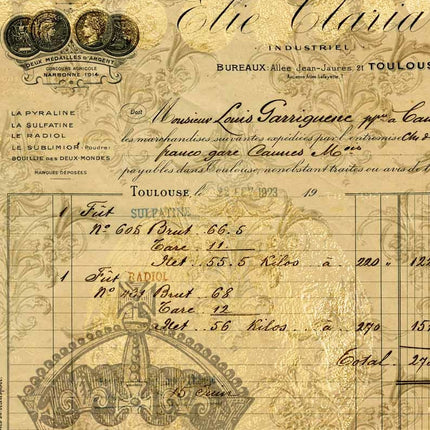 Elie Claria
INDUSTRIEL
BUREAUX: Allée Jean-Jaurès. 21 TOULOUS
DEUX MÉDAILLES D'ARGENT
CONCOURS AGRICOLE
NARBONNE 1914
LA PYRALINE
LA SULFATINE
LE RADIOL
LE SUBLIMIOL (Poudre)
BOUILLIE DES DEUX-MONDES
MARQUES DÉPOSÉES
Doit
Monsieur Louis Garriguenc
les marchandises suivantes expédiées par l'entremise Ch. d
franco gare Caunes
payables dans Toulouse, nonobstant traites ou avis de
TOULOUSE le 1923 19
1 Fût SULFATINE
No 605 Brut 66.5
Tare 11
Net 55.5 Kilos à 220 " 122
1 Fût RADIOL
No Brut 68
Tare 12
Net 56 Kilos à 270 15
Total 27